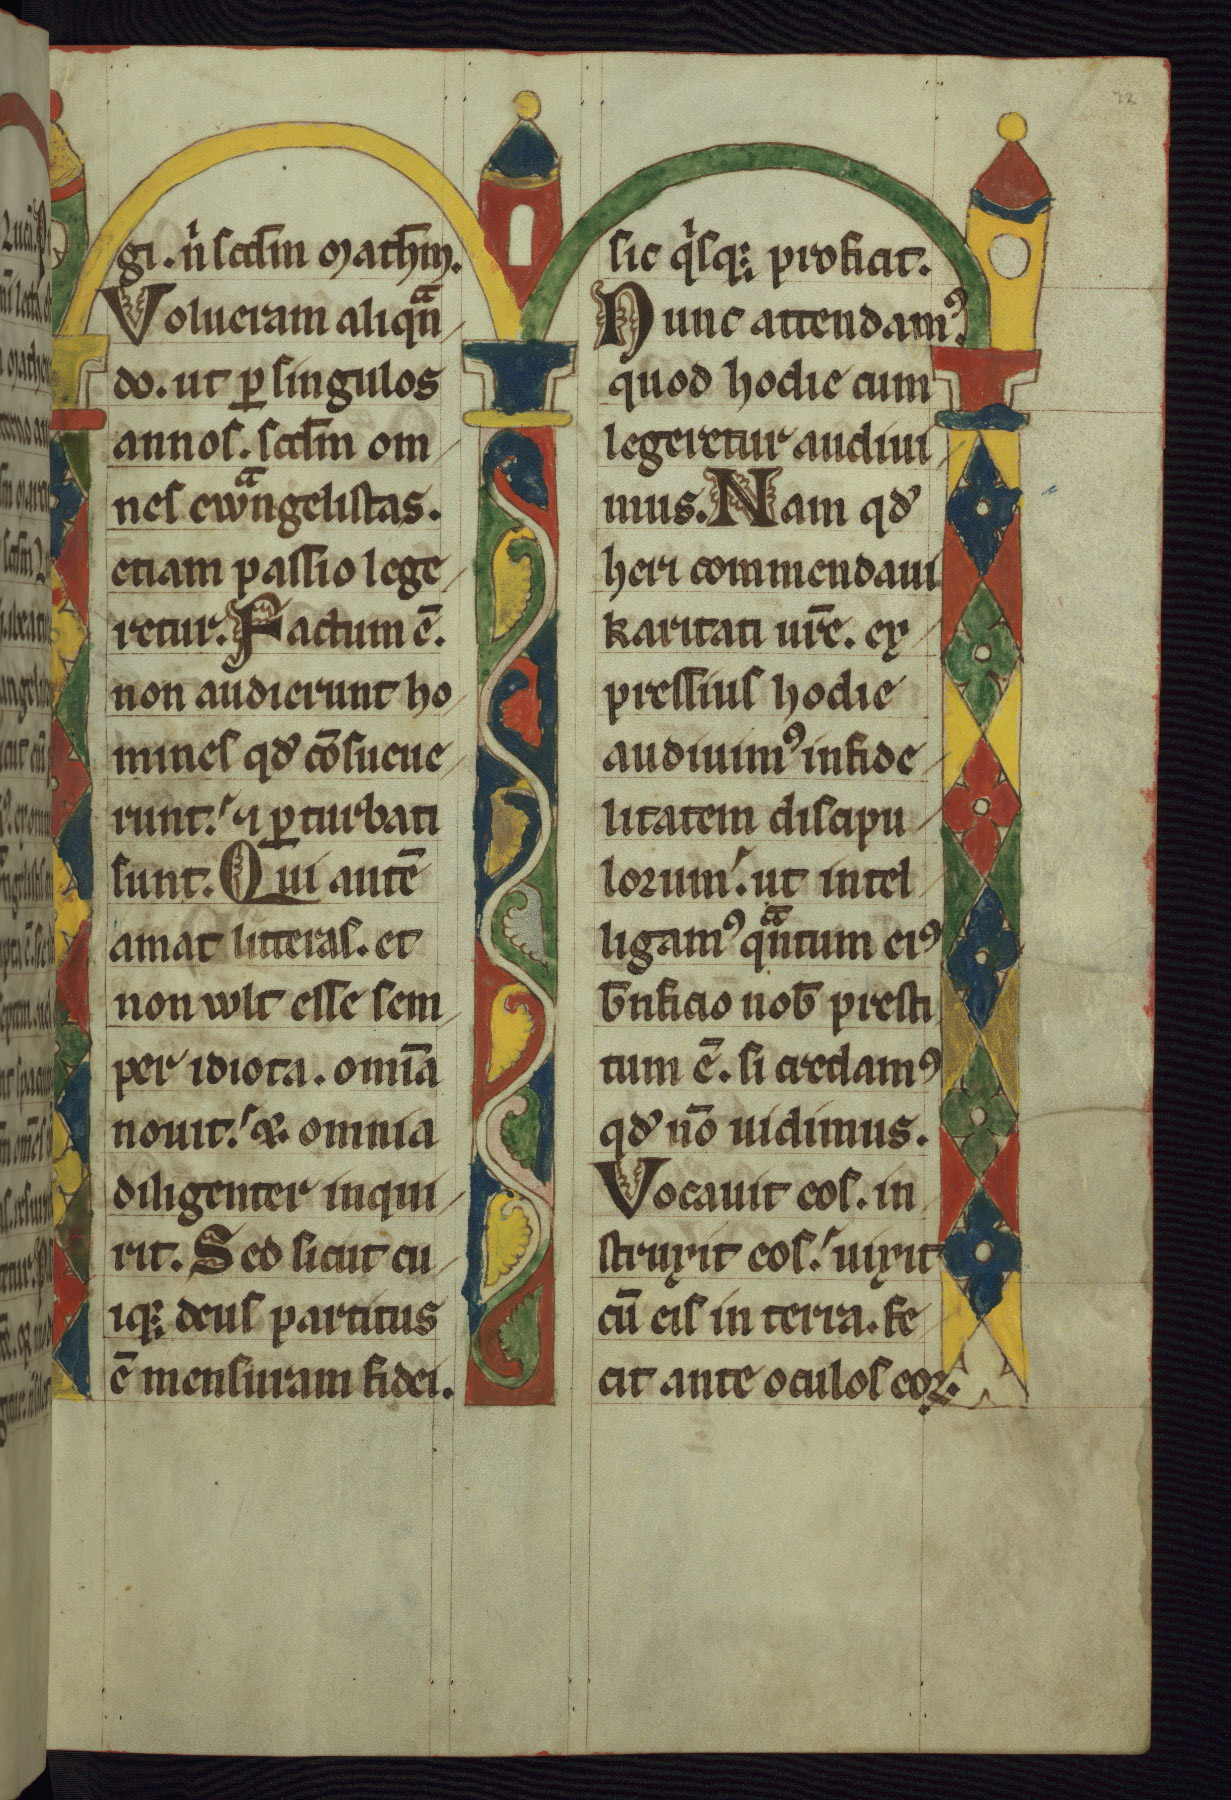 gi. n̄ scd̄m mathm̄.
Volueram aliqn̄
do. ut ꝑ singulos
annos. scd̄m om
nes ewangelistas.
etiam passio lege
retur. Factum ē.
non audierunt ho
mines qđ cōsueue
runt. ⁊ ꝑturbati
sunt. Qui autē
amat litteras. et
non wlt esse sem
per idiota. omīa
nouit. & omnia
diligenter inqui
rit. Sed sicut cu
iqꝫ deus partitus
ē mensuram fidei.
sic qͥsqꝫ proficit.
Nunc attendamꝰ
quod hodie cum
legeretur audiui
mus. Nam qđ
heri commendaui
karitati ur̄e. ex
pressius hodie
audiuimꝰ infide
litatem discipu
lorum. ut intel
ligamꝰ qn̄tum eiꝰ
b̄nficio nob̄ presti
tum ē. si credamꝰ
qđ nō uidimus.
Vocauit eos. in
struxit eos. uixit
cū eis in terra. fe
cit ante oculos eoꝝ.
22